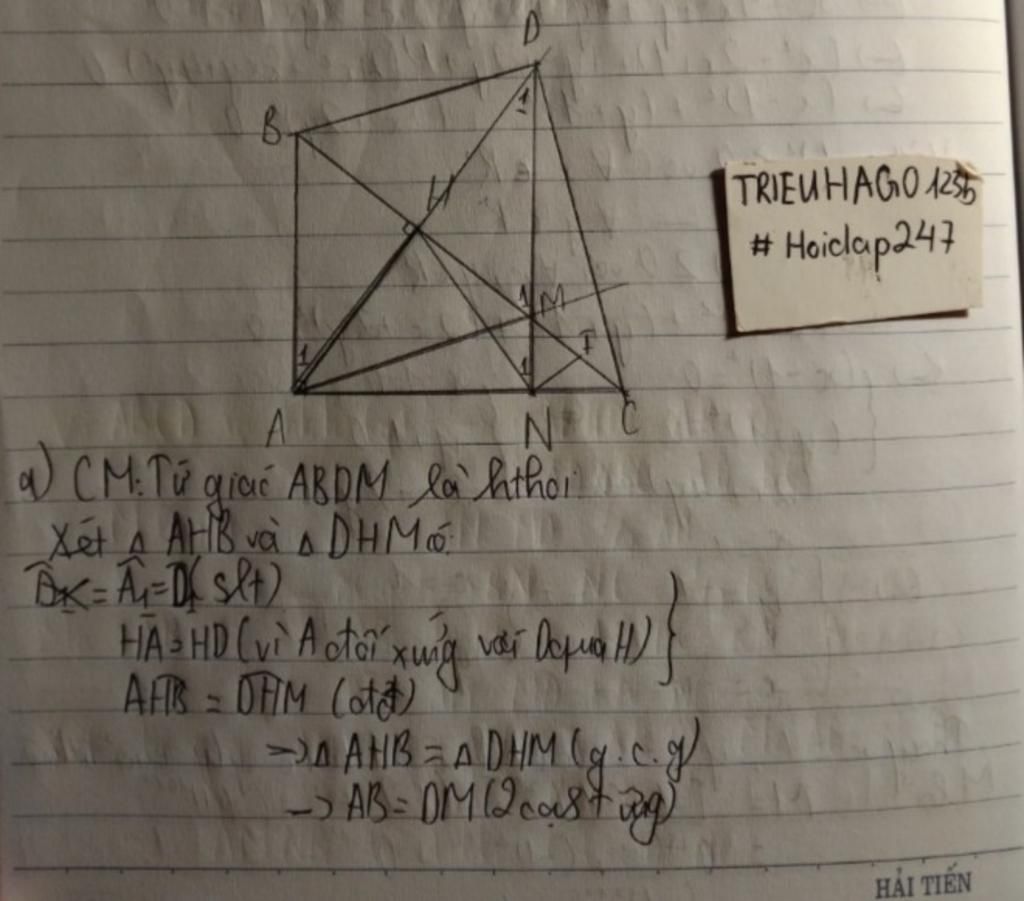 D
B
1
H
TRIEUHAGO1235
# Hoidap247
1 M
I
1
1
A
N
C
a) CM: Tứ giác ABDM là hthoi
Xét Δ AHB và Δ DHM có:
Â1 = D1 (slt)
HA = HD (vì A đối xứng với D qua H) }
AHB = DHM (đđ)
→ Δ AHB = Δ DHM (g.c.g)
→ AB = DM (2 cạnh t ứng)
HẢI TIẾN